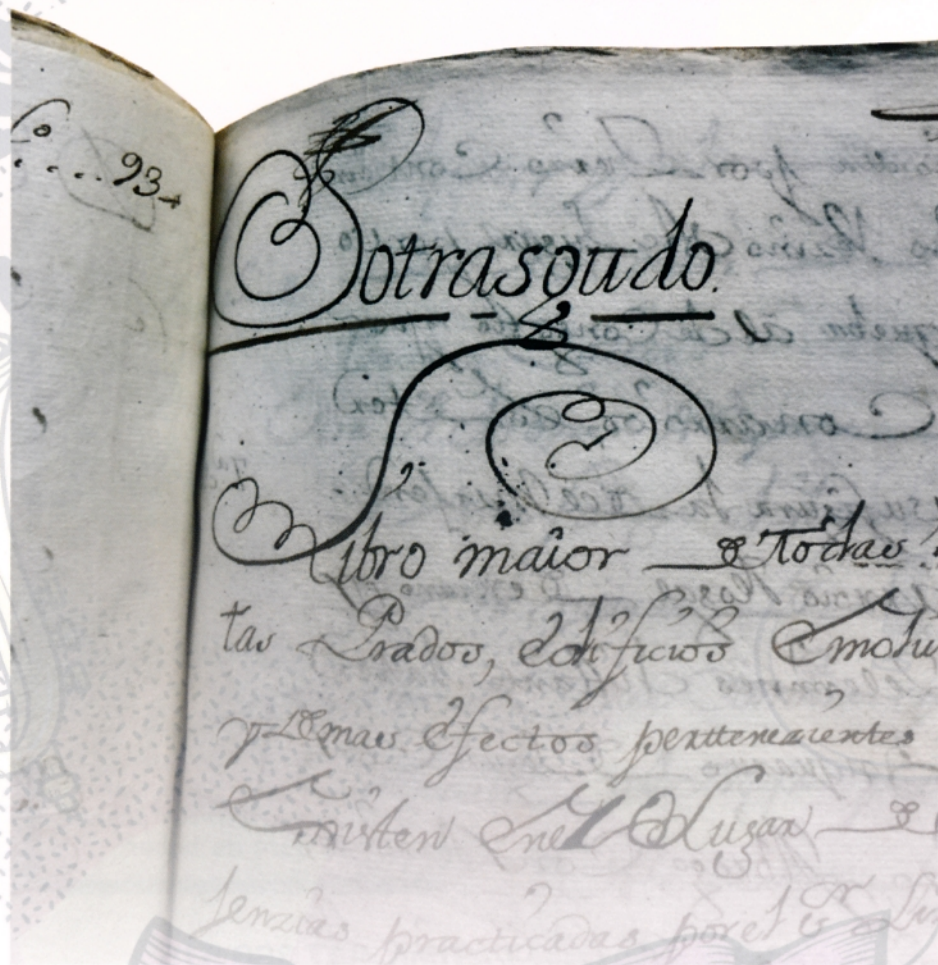 93
Botrasgudo.
Libro maior de todas
tas Prados, edificios Emolu
y demas efectos perttenecientes
Existen En el Lugar de
lenzias practicadas por el Sr